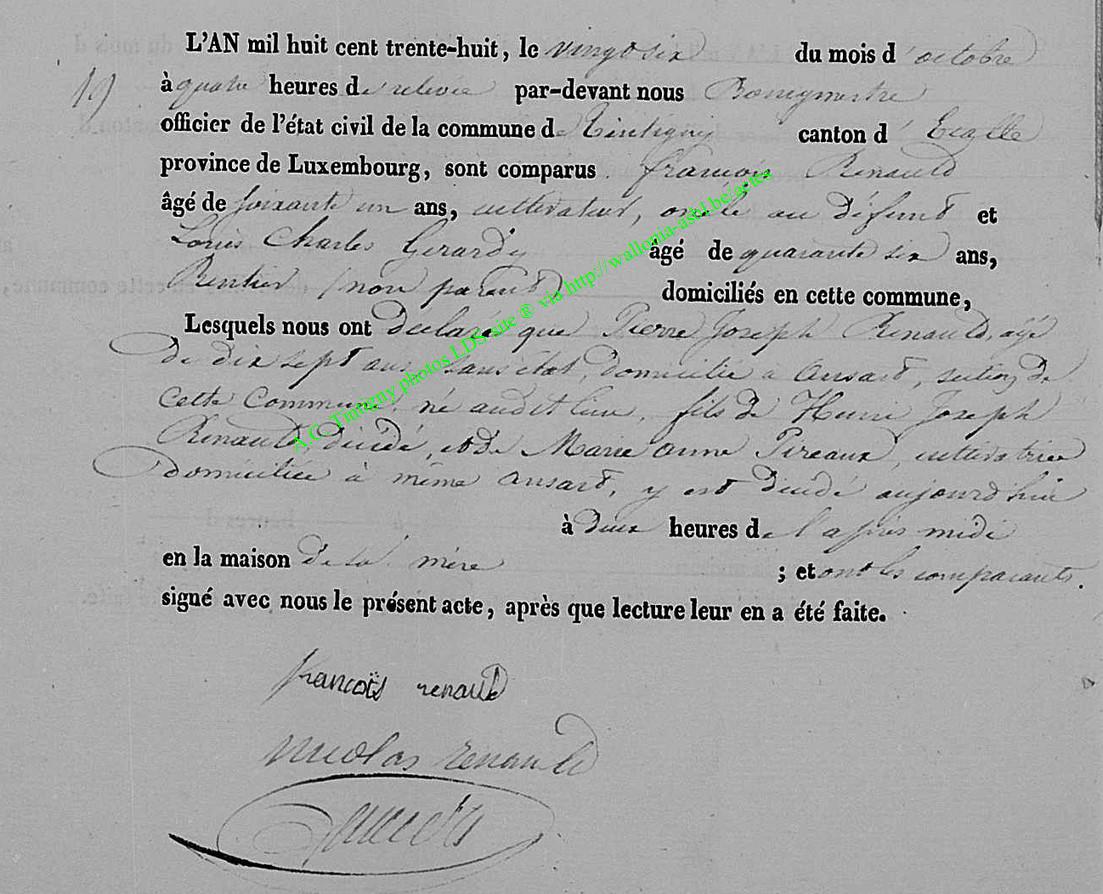 L'AN mil huit cent trente-huit, le vingt six du mois d'octobre
19
à quatre heures de relevée par-devant nous Bourgmestre
officier de l'état civil de la commune de Tintigny canton d'Etalle
province de Luxembourg, sont comparus françois Renauld
âgé de soixante un ans, cultivateur, oncle au défunt et
Louis Charles Gerardy âgé de quarante six ans,
Rentier (non parent) domiciliés en cette commune,
Lesquels nous ont déclaré que Pierre Joseph Renauld, agé
de dix sept ans sans état, domicilié à Ansart, section de
cette Commune, né audit lieu, fils de Henri Joseph
Renauld, décédé, et de Marie Anne Pireaux, cultivatrice
domiciliée à même Ansart, y est décédé aujourd'hui
à deux heures de l'après midi
en la maison de sa mère ; et ont les comparants.
signé avec nous le présent acte, après que lecture leur en a été faite.
A.C. Tintigny photos LDS-site ® via http://wallonia-asbl.be/actes
francois renauld
nicolas renauld